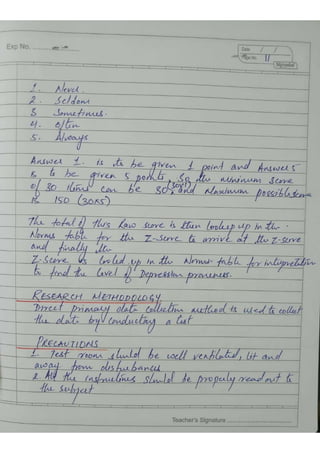 Exp No.
Date / /
Page No. 11
Signature
1. Never
2. Seldom
3. Sometimes
4. Often
5. Always
Answer 1. is to be given 1 point and Answer 5
is to be given 5 points. So the minimum score
of 30 items can be 30 (30x1) and Maximum possible score
is 150 (30x5)
The total of this Raw score is then looked up in the
Norms table for the Z-score to arrive at the Z-score
and finally the
Z-score is looked up in the Norms table for interpretation
to find the level of Depression proneness.
RESEARCH METHODOLOGY
Direct primary data collection method is used to collect
the data by conducting a test
PRECAUTIONS
1. Test room should be well ventilated, lit and
away from disturbances
2. All the instructions should be properly read out to
the subject
Teacher's Signature